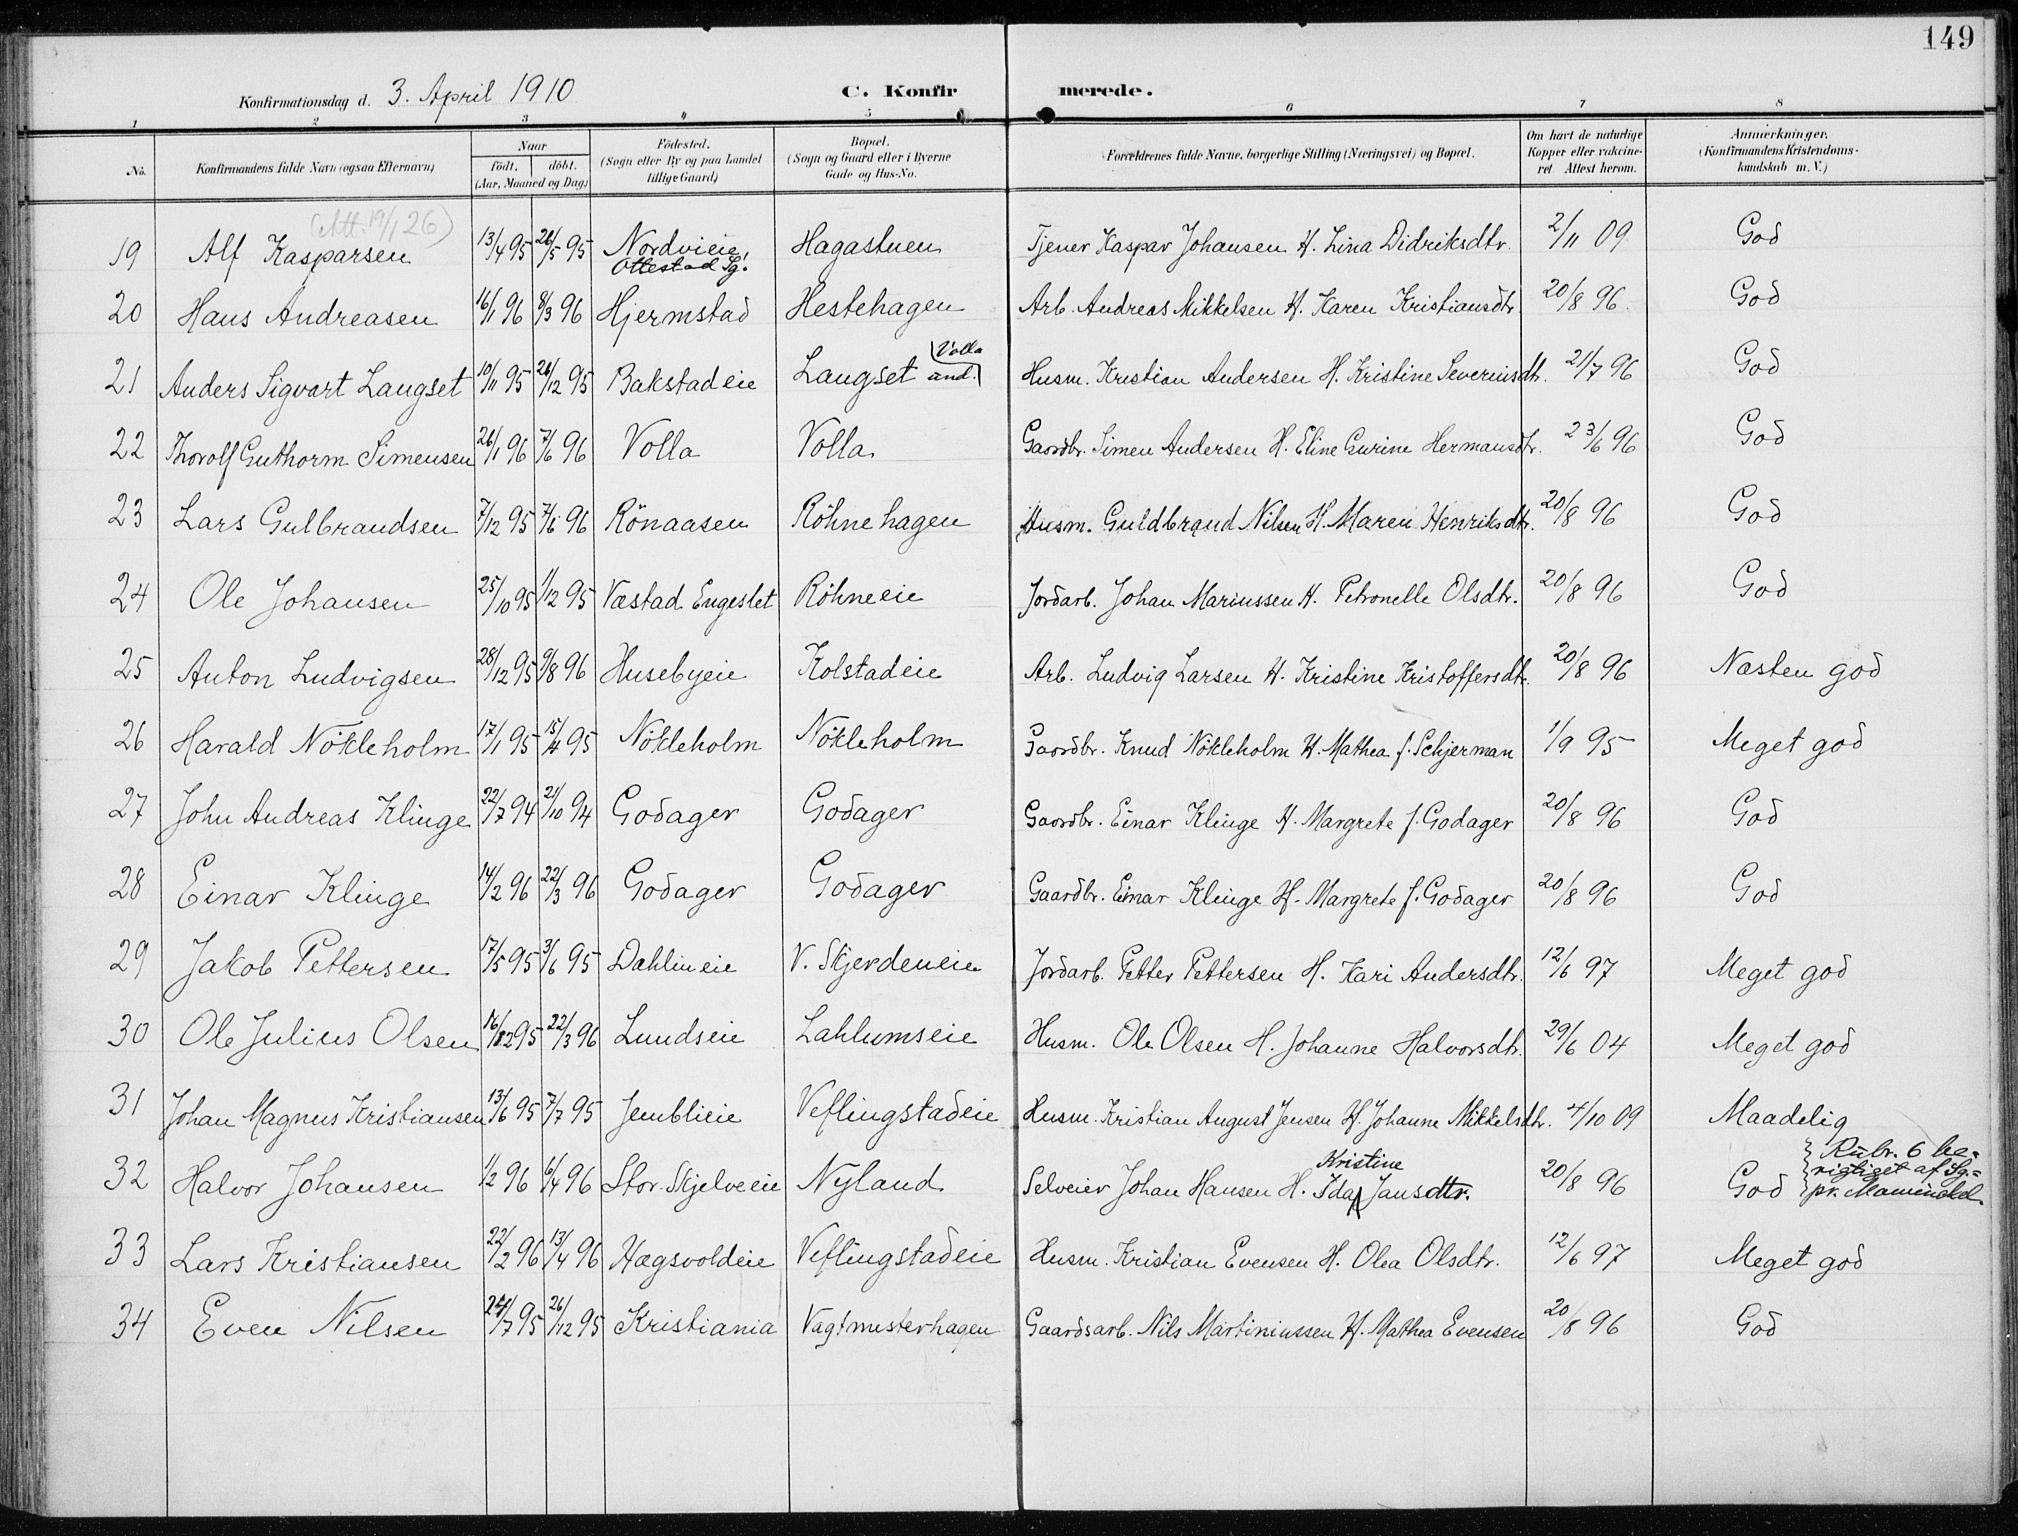 149
Konfirmationsdag d. 3. April 1910 C. Konfirmerede.
1 2 3 4 5 6 7 8
No. Konfirmandens fulde Navn (ogsaa Efternavn) Naar födt. döbt. (Aar, Maaned og Dag) Födested. (Sogn eller By og paa Landet tillige Gaard) Bopæl. (Sogn og Gaard eller i Byerne Gade og Hus-No. Forældrenes fulde Navne, borgerlige Stilling (Næringsvei) og Bopæl. Om havt de naturlige Kopper eller vaccineret Attest herom. Anmærkninger. (Konfirmandens Kristendomskundskab m. V.)
(Att. 19/1 26)
19 Alf Kasparsen 13/4 95 26/5 95 Nordvieie Ottestad Sg. Hagastuen Tjener Kaspar Johansen H. Lina Didriksdtr. 2/11 09 God
20 Hans Andreasen 16/1 96 8/3 96 Hjermstad Hestehagen Arb. Andreas Mikkelsen H. Karen Kristiansdtr 20/8 96. God
21 Anders Sigvart Langset 10/11 95 26/12 95 Bakstadeie Langset Volla and. Husm. Kristian Andersen H. Kristine Severinsdtr. 21/7 96 God
22 Thorolf Guthorm Simensen 26/1 96 7/6 96 Volla Volla Gaardbr. Simen Andersen H. Eline Gurine Hermansdtr. 23/6 96 God
23 Lars Gulbrandsen 7/12 95 7/6 96 Rönaasen Röhnehagen Husm. Guldbrand Nilsen H. Maren Henriksdtr. 20/8 96 God
24 Ole Johansen 25/10 95 1/12 95 Væstad Engeslet Röhneeie Jordarb. Johan Mariussen H. Petronelle Olsdtr. 20/8 96 God
25 Anton Ludvigsen 28/12 95 9/8 96 Husebyeie Kolstadeie Arb. Ludvig Larsen H. Kristine Kristoffersdtr. 20/8 96 Næsten god
26 Harald Nökleholm 17/1 95 15/4 95 Nökleholm Nökleholm Gaardbr. Knud Nökleholm H. Mathea f. Schjerman 1/9 95 Meget god
27 John Andreas Klinge 22/7 94 21/10 94 Godager Godager Gaardbr. Einar Klinge H. Margrete f. Godager 20/8 96 God
28 Einar Klinge 14/2 96 22/3 96 Godager Godager Gaardbr. Einar Klinge H. Margrete f. Godager 20/8 96 God
29 Jakob Pettersen 17/5 95 3/6 95 Dahlineie V. Skjerdeneie Jordarb. Petter Pettersen H. Kari Andersdtr. 12/6 97 Meget god
30 Ole Julius Olsen 16/12 95 22/3 96 Lundseie Lahlumseie Husm. Ole Olsen H. Johanne Halvorsdtr. 29/6 04 Meget god
31 Johan Magnus Kristiansen 13/6 95 7/7 95 Jemblieie Veflingstadeie Husm. Kristian August Jensen H. Johanne Mikkelsdtr. 4/10 09 Maadelig
32 Halvor Johansen 1/2 96 6/4 96 Stor-Skjelveeie Nyland Selveier Johan Hansen H. Ida Kristine Jansdttr. 20/8 96 God } Rubr. 6 be-
rigtiget af Sg.=
pr.
33 Lars Kristiansen 22/2 96 13/4 96 Hægsvoldeie Veflingstadeie Husm. Kristian Evensen H. Olea Olsdtr. 12/6 97 Meget god
34 Even Nilsen 24/7 95 26/12 95 Kristiania Vagtmesterhagen Gaardsarb. Nils Martiniussen H. Mathea Evensen 20/8 96 God